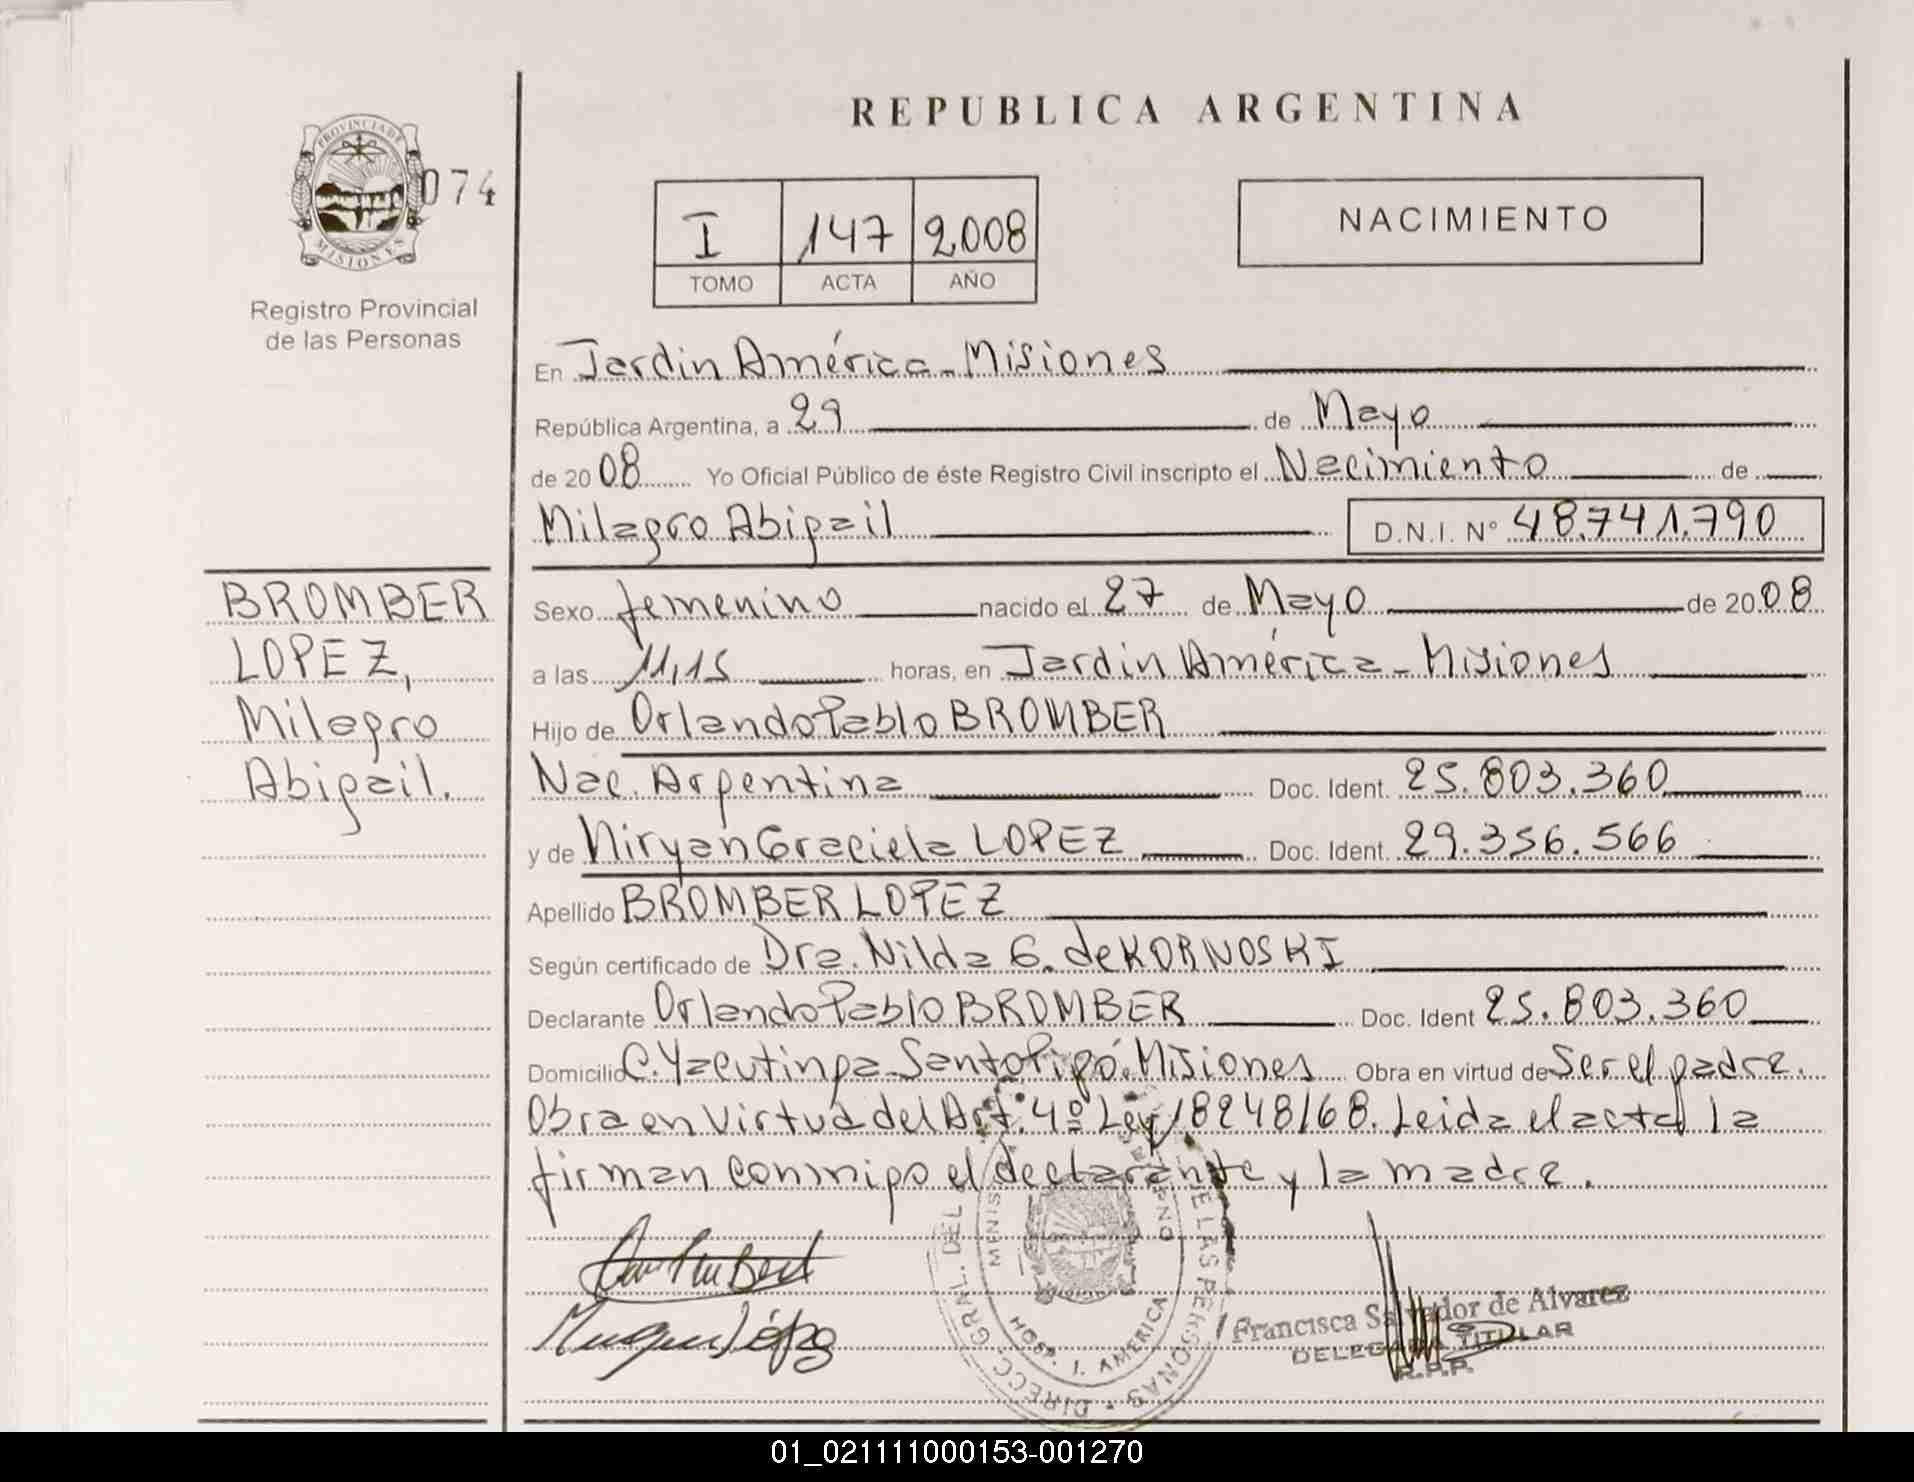 REPUBLICA ARGENTINA
PROVINCIA DE
MISIONES
074
Registro Provincial
de las Personas
I 147 2008
TOMO ACTA AÑO
NACIMIENTO
En Jardin América - Misiones
República Argentina, a 29 de Mayo
de 2008 Yo Oficial Público de éste Registro Civil inscripto el Nacimiento de
Milagro Abigail D.N.I. Nº 48.741.790
BROMBER
LOPEZ,
Milagro
Abigail.
Sexo femenino nacido el 27 de Mayo de 2008
a las 11,15 horas, en Jardin América - Misiones
Hijo de Orlando Pablo BROMBER
Nac. Argentina Doc. Ident. 25.803.360
y de Miryan Graciela LOPEZ Doc. Ident. 29.356.566
Apellido BROMBER LOPEZ
Según certificado de Dra. Nilda G. de KORNOSKI
Declarante Orlando Pablo BROMBER Doc. Ident 25.803.360
Domicilio C. Yacutinga - Santo Pipó. Misiones Obra en virtud de Ser el padre.
Obra en virtud del Art. 4º Ley 18248/68. Leida el acta la
firman conmigo el declarante y la madre.
DIRECC. GRAL. DEL DE LAS PERSONAS
HOSP. J. AMERICA
López
Francisca Salvador de Alvarez
DELEGADA TITULAR
R.P.P.
01_021111000153-001270